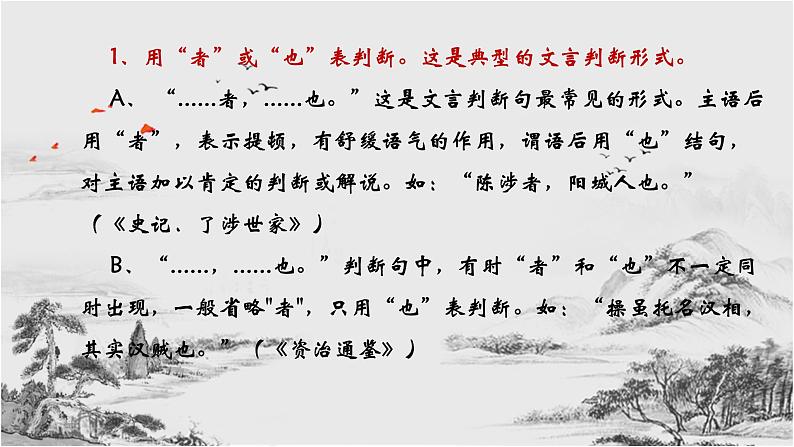 1、用“者”或“也”表判断。这是典型的文言判断形式。
A、“……者，……也。”这是文言判断句最常见的形式。主语后
用“者”，表示提顿，有舒缓语气的作用，谓语后用“也”结句，
对主语加以肯定的判断或解说。如：“陈涉者，阳城人也。”
（《史记．了涉世家》）
B、“……，……也。”判断句中，有时“者”和“也”不一定同
时出现，一般省略"者"，只用“也”表判断。如：“操虽托名汉相，
其实汉贼也。”（《资治通鉴》）